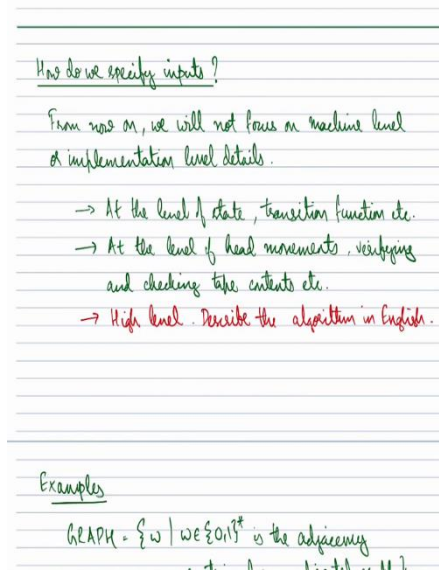 How do we specify inputs?
From now on, we will not focus on machine level
or implementation level details.
→ At the level of state, transition function etc.
→ At the level of head movements, verifying
and checking tape contents etc.
→ High level. Describe the algorithm in English.
Examples
GRAPH = {w | w ∈ {0,1}* is the adjacency